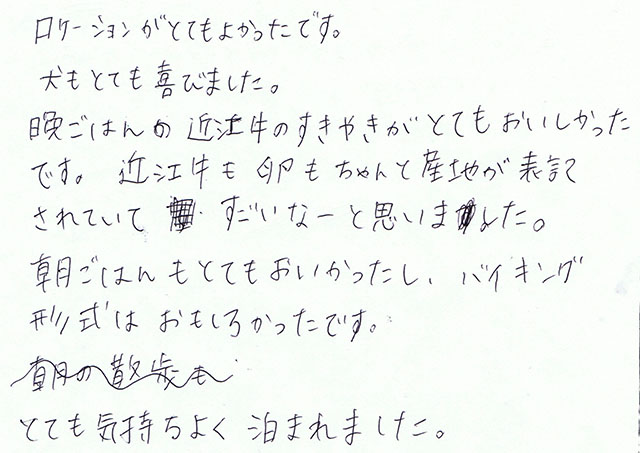 ロケーションがとてもよかったです。
犬もとても喜びました。
晩ごはんの近江牛のすきやきがとてもおいしかった
です。近江牛も卵もちゃんと産地が表記
されていて すごいなーと思いました。
朝ごはんもとてもおいかったし、バイキング
形式はおもしろかったです。
朝の散歩も
とても気持ちよく泊まれました。